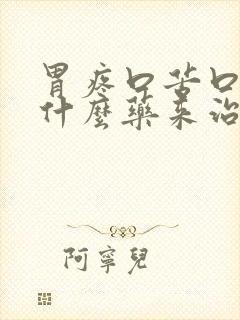 胃疼口苦口
什麼藥來治
阿寧兒